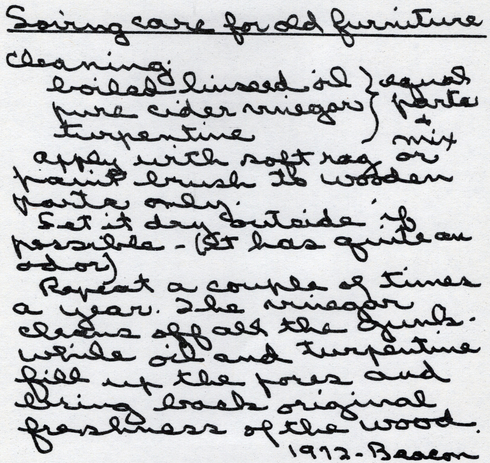 Spring care for old furniture
cleaning
boiled linseed oil } equal
pure cider vinegar } parts
turpentine } + mix
apply with soft rag or
paint brush to wooden
parts only.
Let it dry outside if
possible - (It has quite an
odor)
Repeat a couple of times
a year. The vinegar
cleans off all the gunk -
while oil and turpentine
fill up the pores and
bring back original
freshness of the wood.
1972 - Beacon